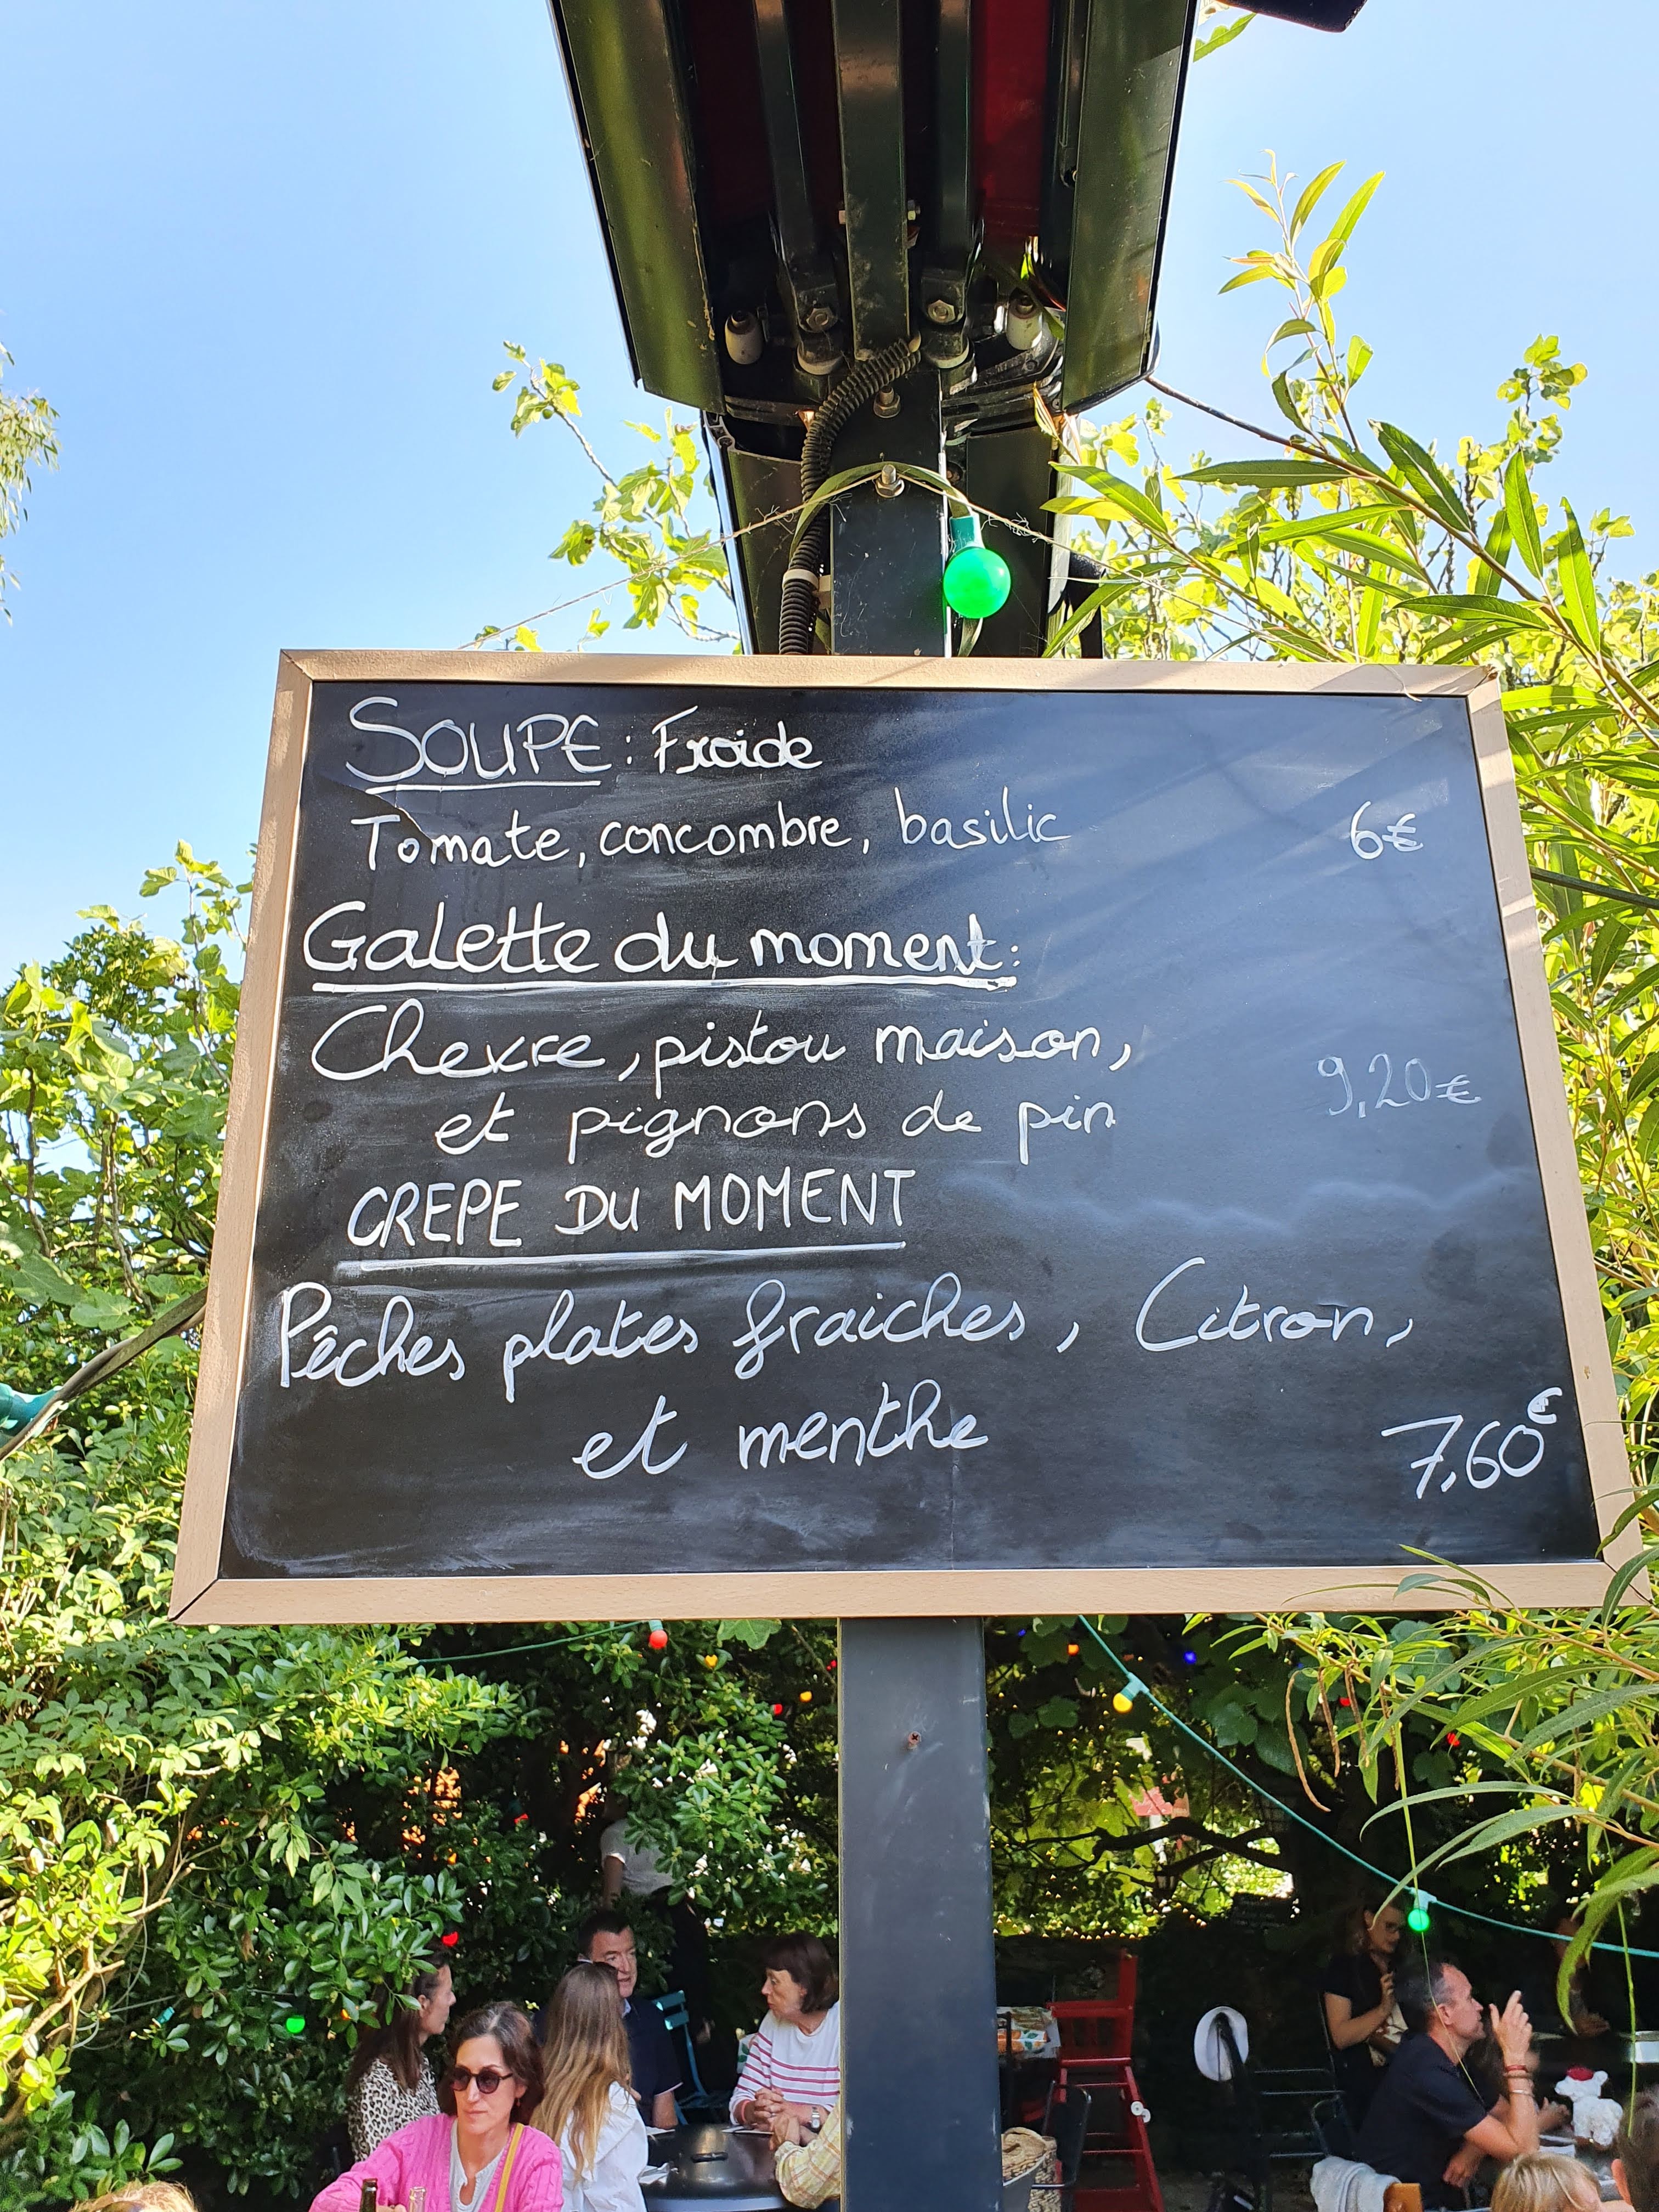 SOUPE : Froide
Tomate, concombre, basilic 6€
Galette du moment:
Chevre, pistou maison,
9,20€
et pignons de pin
CREPE DU MOMENT
Pêches plates fraiches, Citron,
et menthe 7,60€